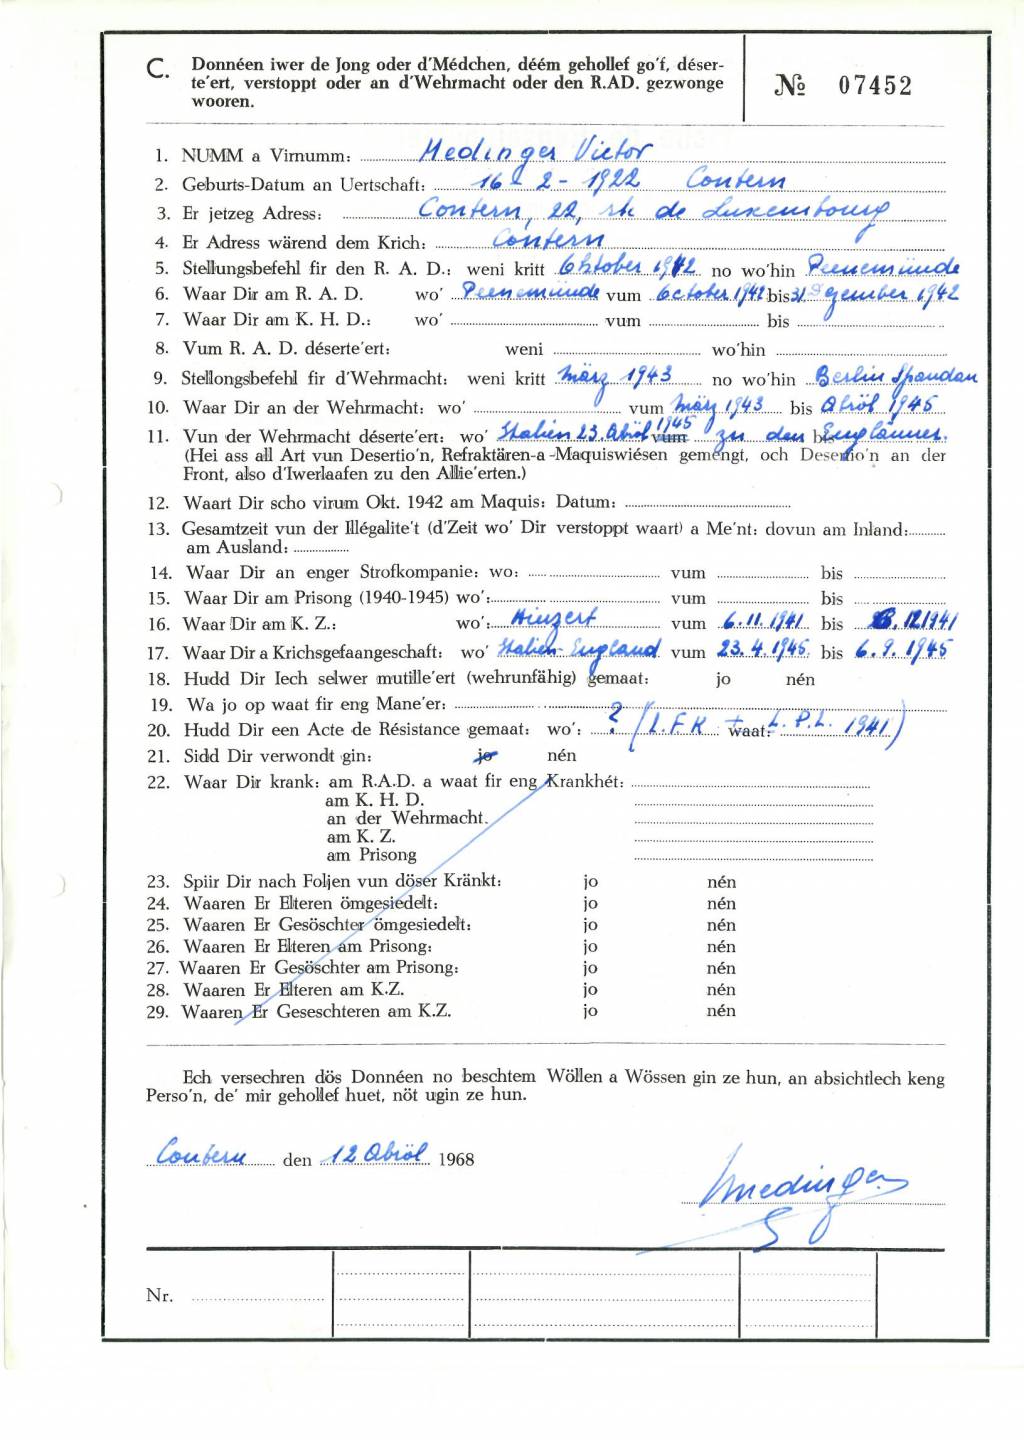 C. Donnéen iwer de Jong oder d'Médchen, déém gehollef go'f, déser-
te'ert, verstoppt oder an d'Wehrmacht oder den R.AD. gezwonge
wooren.
№ 07452
1. NUMM a Virnumm: Medinger Victor
2. Geburts-Datum an Uertschaft: 16 - 2 - 1922 Contern
3. Er jetzeg Adress: Contern, 22, rte de Luxembourg
4. Er Adress wärend dem Krich: Contern
5. Stellungsbefehl fir den R. A. D.: weni kritt Oktober 1942 no wo'hin Peenemünde
6. Waar Dir am R. A. D. wo' Peenemünde vum October 1942 bis 31 Dezember 1942
7. Waar Dir am K. H. D.: wo' vum bis
8. Vum R. A. D. déserte'ert: weni wo'hin
9. Stellongsbefehl fir d'Wehrmacht: weni kritt März 1943 no wo'hin Berlin Spandau
10. Waar Dir an der Wehrmacht: wo' vum März 1943 bis Abröl 1945
11. Vun der Wehrmacht déserte'ert: wo' Italien 23. Abröl 1945 vum zu den bis Englänner.
(Hei ass all Art vun Desertio'n, Refraktären-a-Maquiswiésen gemengt, och Desertio'n an der
Front, also d'Iwerlaafen zu den Allie'erten.)
12. Waart Dir scho virum Okt. 1942 am Maquis: Datum:
13. Gesamtzeit vun der Illégalite't (d'Zeit wo' Dir verstoppt waart) a Me'nt: dovun am Inland:
am Ausland:
14. Waar Dir an enger Strofkompanie: wo: vum bis
15. Waar Dir am Prisong (1940-1945) wo': vum bis
16. Waar Dir am K. Z.: wo': Hinzert vum 6.11.1941 bis 12.1941
17. Waar Dir a Krichsgefaangeschaft: wo' Italien-England vum 23.4.1945 bis 6.9.1945
18. Hudd Dir Iech selwer mutille'ert (wehrunfähig) gemaat: jo nén
19. Wa jo op waat fir eng Mane'er:
20. Hudd Dir een Acte de Résistance gemaat: wo': ? (L.F.K + waat: L.P.L. 1941)
21. Sidd Dir verwondt gin: jo nén
22. Waar Dir krank: am R.A.D. a waat fir eng Krankhét:
am K. H. D.
an der Wehrmacht.
am K. Z.
am Prisong
23. Spiir Dir nach Foljen vun döser Kränkt: jo nén
24. Waaren Er Elteren ömgesiedelt: jo nén
25. Waaren Er Gesöschter ömgesiedelt: jo nén
26. Waaren Er Elteren am Prisong: jo nén
27. Waaren Er Gesöschter am Prisong: jo nén
28. Waaren Er Elteren am K.Z. jo nén
29. Waaren Er Geseschteren am K.Z. jo nén
Ech versechren dös Donnéen no beschtem Wöllen a Wössen gin ze hun, an absichtlech keng
Perso'n, de' mir gehollef huet, nöt ugin ze hun.
Contern den 12 Abröl 1968
Medinger
Nr.